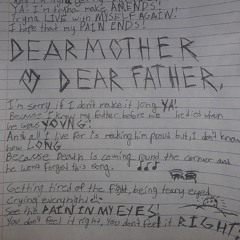 YA! I'm tryna' make AMENDS!
Tryna LIVE with MYSELF AGAIN!
I hope that my PAIN ENDS!
DEAR MOTHER
DEAR FATHER,
I'm sorry if I don't make it long YA!
Because I know my father before me died when
he was YOUNG!
And all I live for is making him proud but I don't know
how LONG
Because Death is coming round the corner and
he won't forget this song.
Getting tired of the fight, being teary eyed
Crying everynight!
See the PAIN IN MY EYES!
You don't feel it right, You don't feel it RIGHT